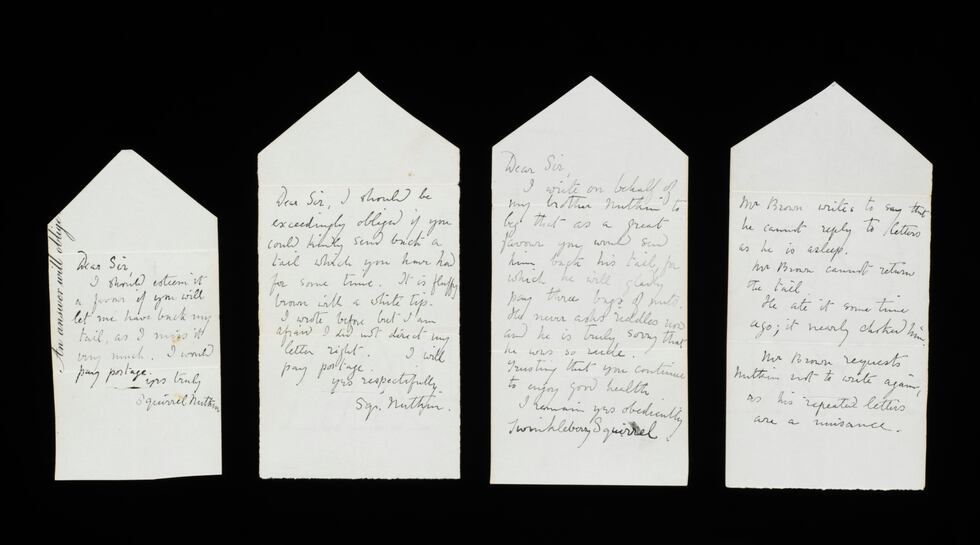 An answer will oblige
Dear Sir,
I should esteem it
a favour if you will
let me have back my
tail, as I miss it
very much. I would
pay postage.
yrs truly
Squirrel Nutkin
Dear Sir, I should be
exceedingly obliged if you
could kindly send back a
tail which you have had
for some time. It is fluffy
brown with a white tip.
I wrote before but I am
afraid I did not direct my
letter right. I will
pay postage.
yrs respectfully
Sq. Nutkin.
Dear Sir,
I write on behalf of
my brother Nutkin to
beg that as a great
favour you would send
him back his tail for
which he will gladly
pay three bags of nuts.
He never asks riddles now
and he is truly sorry that
he was so rude.
Trusting that you continue
to enjoy good health
I remain yrs obediently
Twinkleberry Squirrel
Mr Brown writes to say that
he cannot reply to letters
as he is asleep.
Mr Brown cannot return
the tail.
He ate it some time
ago; it nearly choked him.
Mr Brown requests
Nutkin not to write again,
as his repeated letters
are a nuisance.